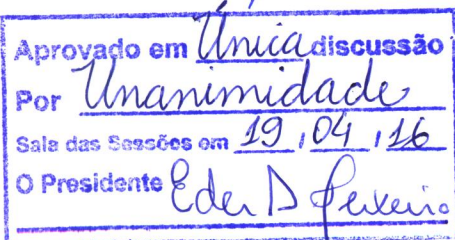 Aprovado em Única discussão
Por Unanimidade
Sala das Sessões em 19, 04, 16
O Presidente Eder D Peixeiro